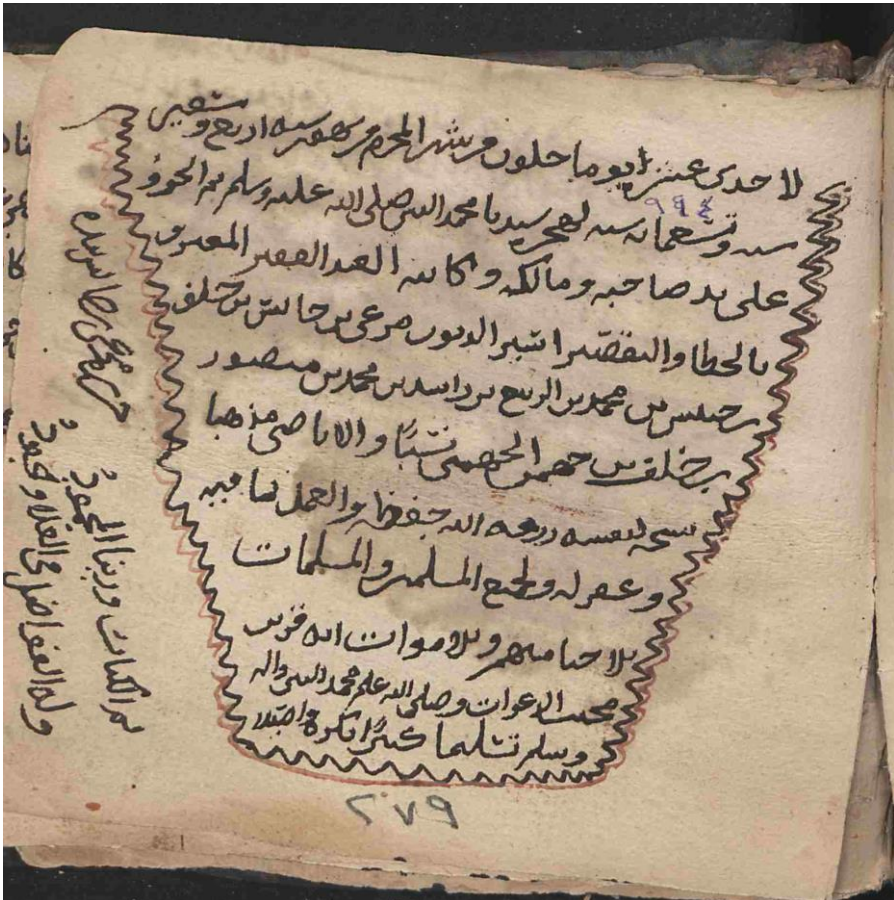 لاحدى عشر يوما خلون من شهر المحرم من شهور سنه اربع وتسعين
سنه وتسعمائه سنه لهجرة سيدنا محمد النبى صلى الله عليه وسلم
٩٩٤
على يد صاحبه ومالكه وكاتبه العبد الفقير المعترف
بالخطا والتقصير اسير الديون مرعى بن خلف
بن محمد بن الربيع بن راشد بن محمد بن منصور
بن خلف بن جهمى الجهضمى نسبًا والاباضى مذهبا
نسخه لنفسه رزقه الله حفظه والعمل بما فيه
وغفر له ولجميع المسلمين والمسلمات
للاحيا منهم وللاموات انه قريب
مجيب الدعوات وصلى الله على محمد النبى واله
وسلم تسليما كثيرًا بكرة واصيلا
٢٧٩
تم الكتاب وربنا المحمود
وله الفواضل والعلا والجود